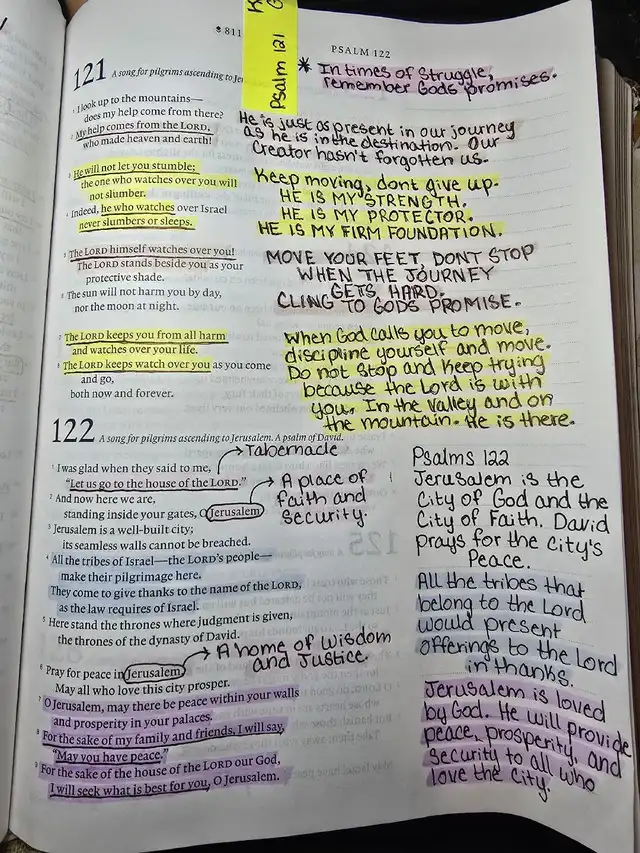 811
PSALM 122
Psalm 121
121 A song for pilgrims ascending to Jer
* In times of Struggle,
remember Gods promises.
1 I look up to the mountains—
does my help come from there?
2 My help comes from the LORD,
who made heaven and earth!
He is just as present in our journey
as he is in the destination. Our
Creator hasn't forgotten us.
3 He will not let you stumble;
the one who watches over you will
not slumber.
4 Indeed, he who watches over Israel
never slumbers or sleeps.
Keep moving, dont give up.
HE IS MY STRENGTH.
HE IS MY PROTECTOR.
HE IS MY FIRM FOUNDATION.
5 The LORD himself watches over you!
The LORD stands beside you as your
protective shade.
6 The sun will not harm you by day,
nor the moon at night.
MOVE YOUR FEET, DONT STOP
WHEN THE JOURNEY
GETS HARD.
CLING TO GODS PROMISE.
7 The LORD keeps you from all harm
and watches over your life.
8 The LORD keeps watch over you as you come
and go,
both now and forever.
When God calls you to move,
discipline yourself and move.
Do not Stop and Keep trying
because the Lord is with
you. In the Valley and on
the mountain. He is there.
122 A song for pilgrims ascending to Jerusalem. A psalm of David.
Tabernacle
1 I was glad when they said to me,
"Let us go to the house of the LORD."
2 And now here we are,
standing inside your gates, O Jerusalem.
A place of
faith and
security.
3 Jerusalem is a well-built city;
its seamless walls cannot be breached.
4 All the tribes of Israel—the LORD's people—
make their pilgrimage here.
They come to give thanks to the name of the LORD,
as the law requires of Israel.
5 Here stand the thrones where judgment is given,
the thrones of the dynasty of David.
A home of Wisdom
and Justice.
6 Pray for peace in Jerusalem.
May all who love this city prosper.
7 O Jerusalem, may there be peace within your walls
and prosperity in your palaces.
8 For the sake of my family and friends, I will say,
"May you have peace."
9 For the sake of the house of the LORD our God,
I will seek what is best for you, O Jerusalem.
Psalms 122
Jerusalem is the
City of God and the
City of Faith. David
prays for the City's
Peace.
All the tribes that
belong to the Lord
would present
offerings to the Lord
in thanks.
Jerusalem is loved
by God. He will provide
peace, prosperity, and
security to all who
love the City.